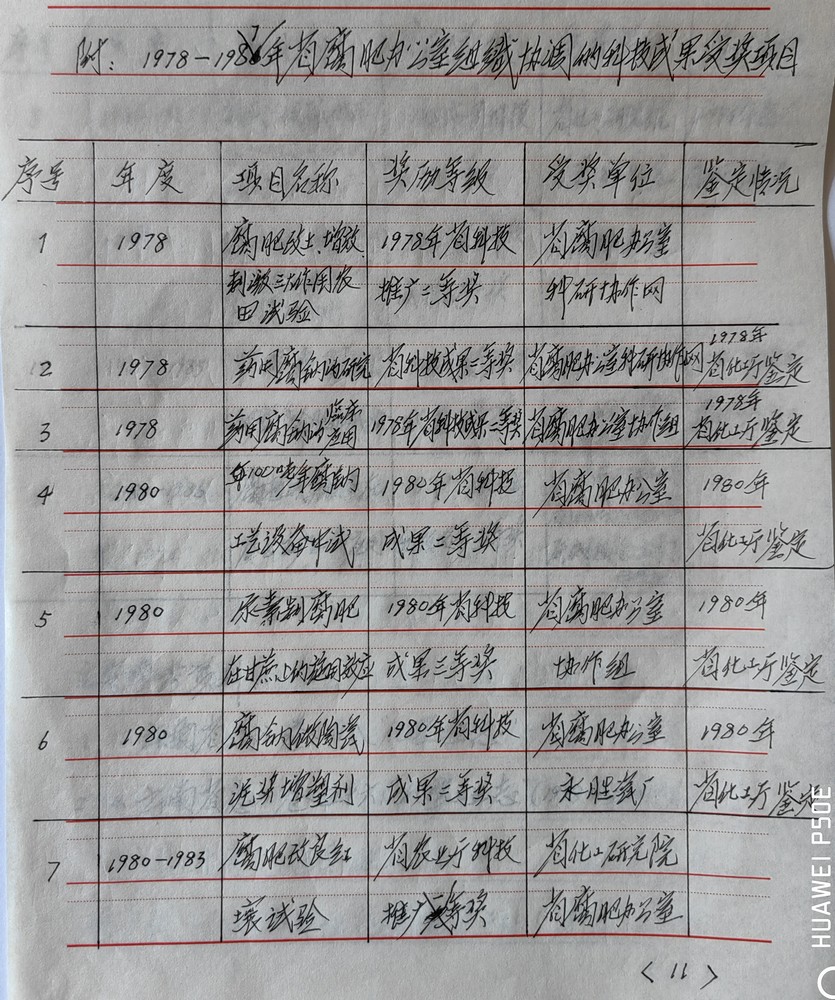 附：1978－1987年省腐肥办公室组织协调的科技成果受奖项目
序号 年度 项目名称 奖励等级 受奖单位 鉴定情况
1 1978 腐肥改土、增效、 1978年省科技 省腐肥办公室
刺激三大作用农 推广二等奖 科研协作网
田试验
1978年
2 1978 药用腐钠的研究 省科技成果二等奖 省腐肥办公室科研协作网 省化工厅鉴定
临床 1978年
3 1978 药用腐钠的应用 1978年省科技成果二等奖 省腐肥办公室协作组 省化工厅鉴定
4 1980 年100吨年腐钠 1980年省科技 省腐肥办公室 1980年
工艺设备中试 成果二等奖 省化工厅鉴定
5 1980 尿素制腐肥 1980年省科技 省腐肥办公室 1980年
在甘蔗上的施用效应 成果三等奖 协作组 省化工厅鉴定
6 1980 腐钠做陶瓷 1980年省科技 省腐肥办公室 1980年
泥浆增塑剂 成果二等奖 永胜瓷厂 省化工厅鉴定
7 1980－1983 腐肥改良红 省农业厅科技 省化工研究院
壤试验 推广等奖 省腐肥办公室
〈11〉
HUAWEI P50E